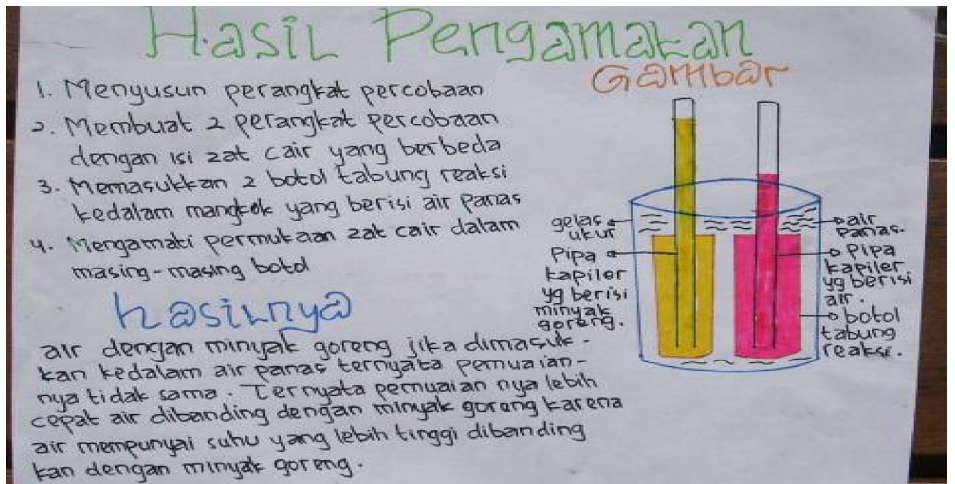 Hasil Pengamatan
Gambar
1. Menyusun perangkat percobaan
2. Membuat 2 perangkat percobaan
dengan isi zat cair yang berbeda
3. Memasukkan 2 botol tabung reaksi
kedalam mangkok yang berisi air panas
4. Mengamati permukaan zat cair dalam
masing-masing botol
hasilnya
air dengan minyak goreng jika dimasuk-
kan kedalam air panas ternyata pemuaian-
nya tidak sama. Ternyata pemuaian nya lebih
cepat air dibanding dengan minyak goreng karena
air mempunyai suhu yang lebih tinggi dibanding
kan dengan minyak goreng.
gelas
ukur
Pipa
kapiler
yg berisi
minyak
goreng.
air
panas.
Pipa
kapiler
yg berisi
air.
botol
tabung
reaksi.